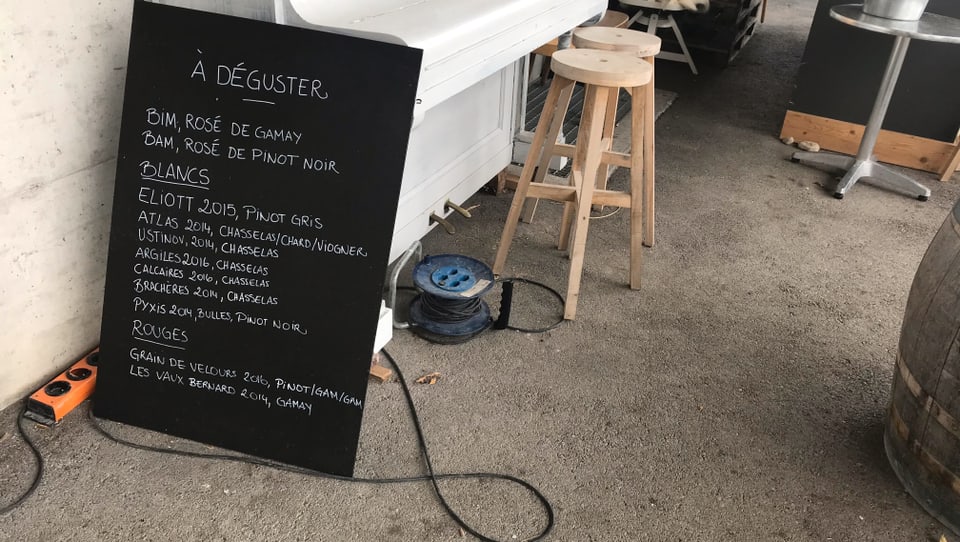 À DÉGUSTER
BIM, ROSÉ DE GAMAY
BAM, ROSÉ DE PINOT NOIR
BLANCS
ELIOTT 2015, PINOT GRIS
ATLAS 2014, CHASSELAS/CHARD/VIOGNER
USTINOV, 2014, CHASSELAS
ARGILES 2016, CHASSELAS
CALCAIRES 2016, CHASSELAS
BRACHÈRES 2014, CHASSELAS
PYXIS 2014, BULLES, PINOT NOIR
ROUGES
GRAIN DE VELOURS 2016, PINOT/GAM/GAM
LES VAUX BERNARD 2014, GAMAY